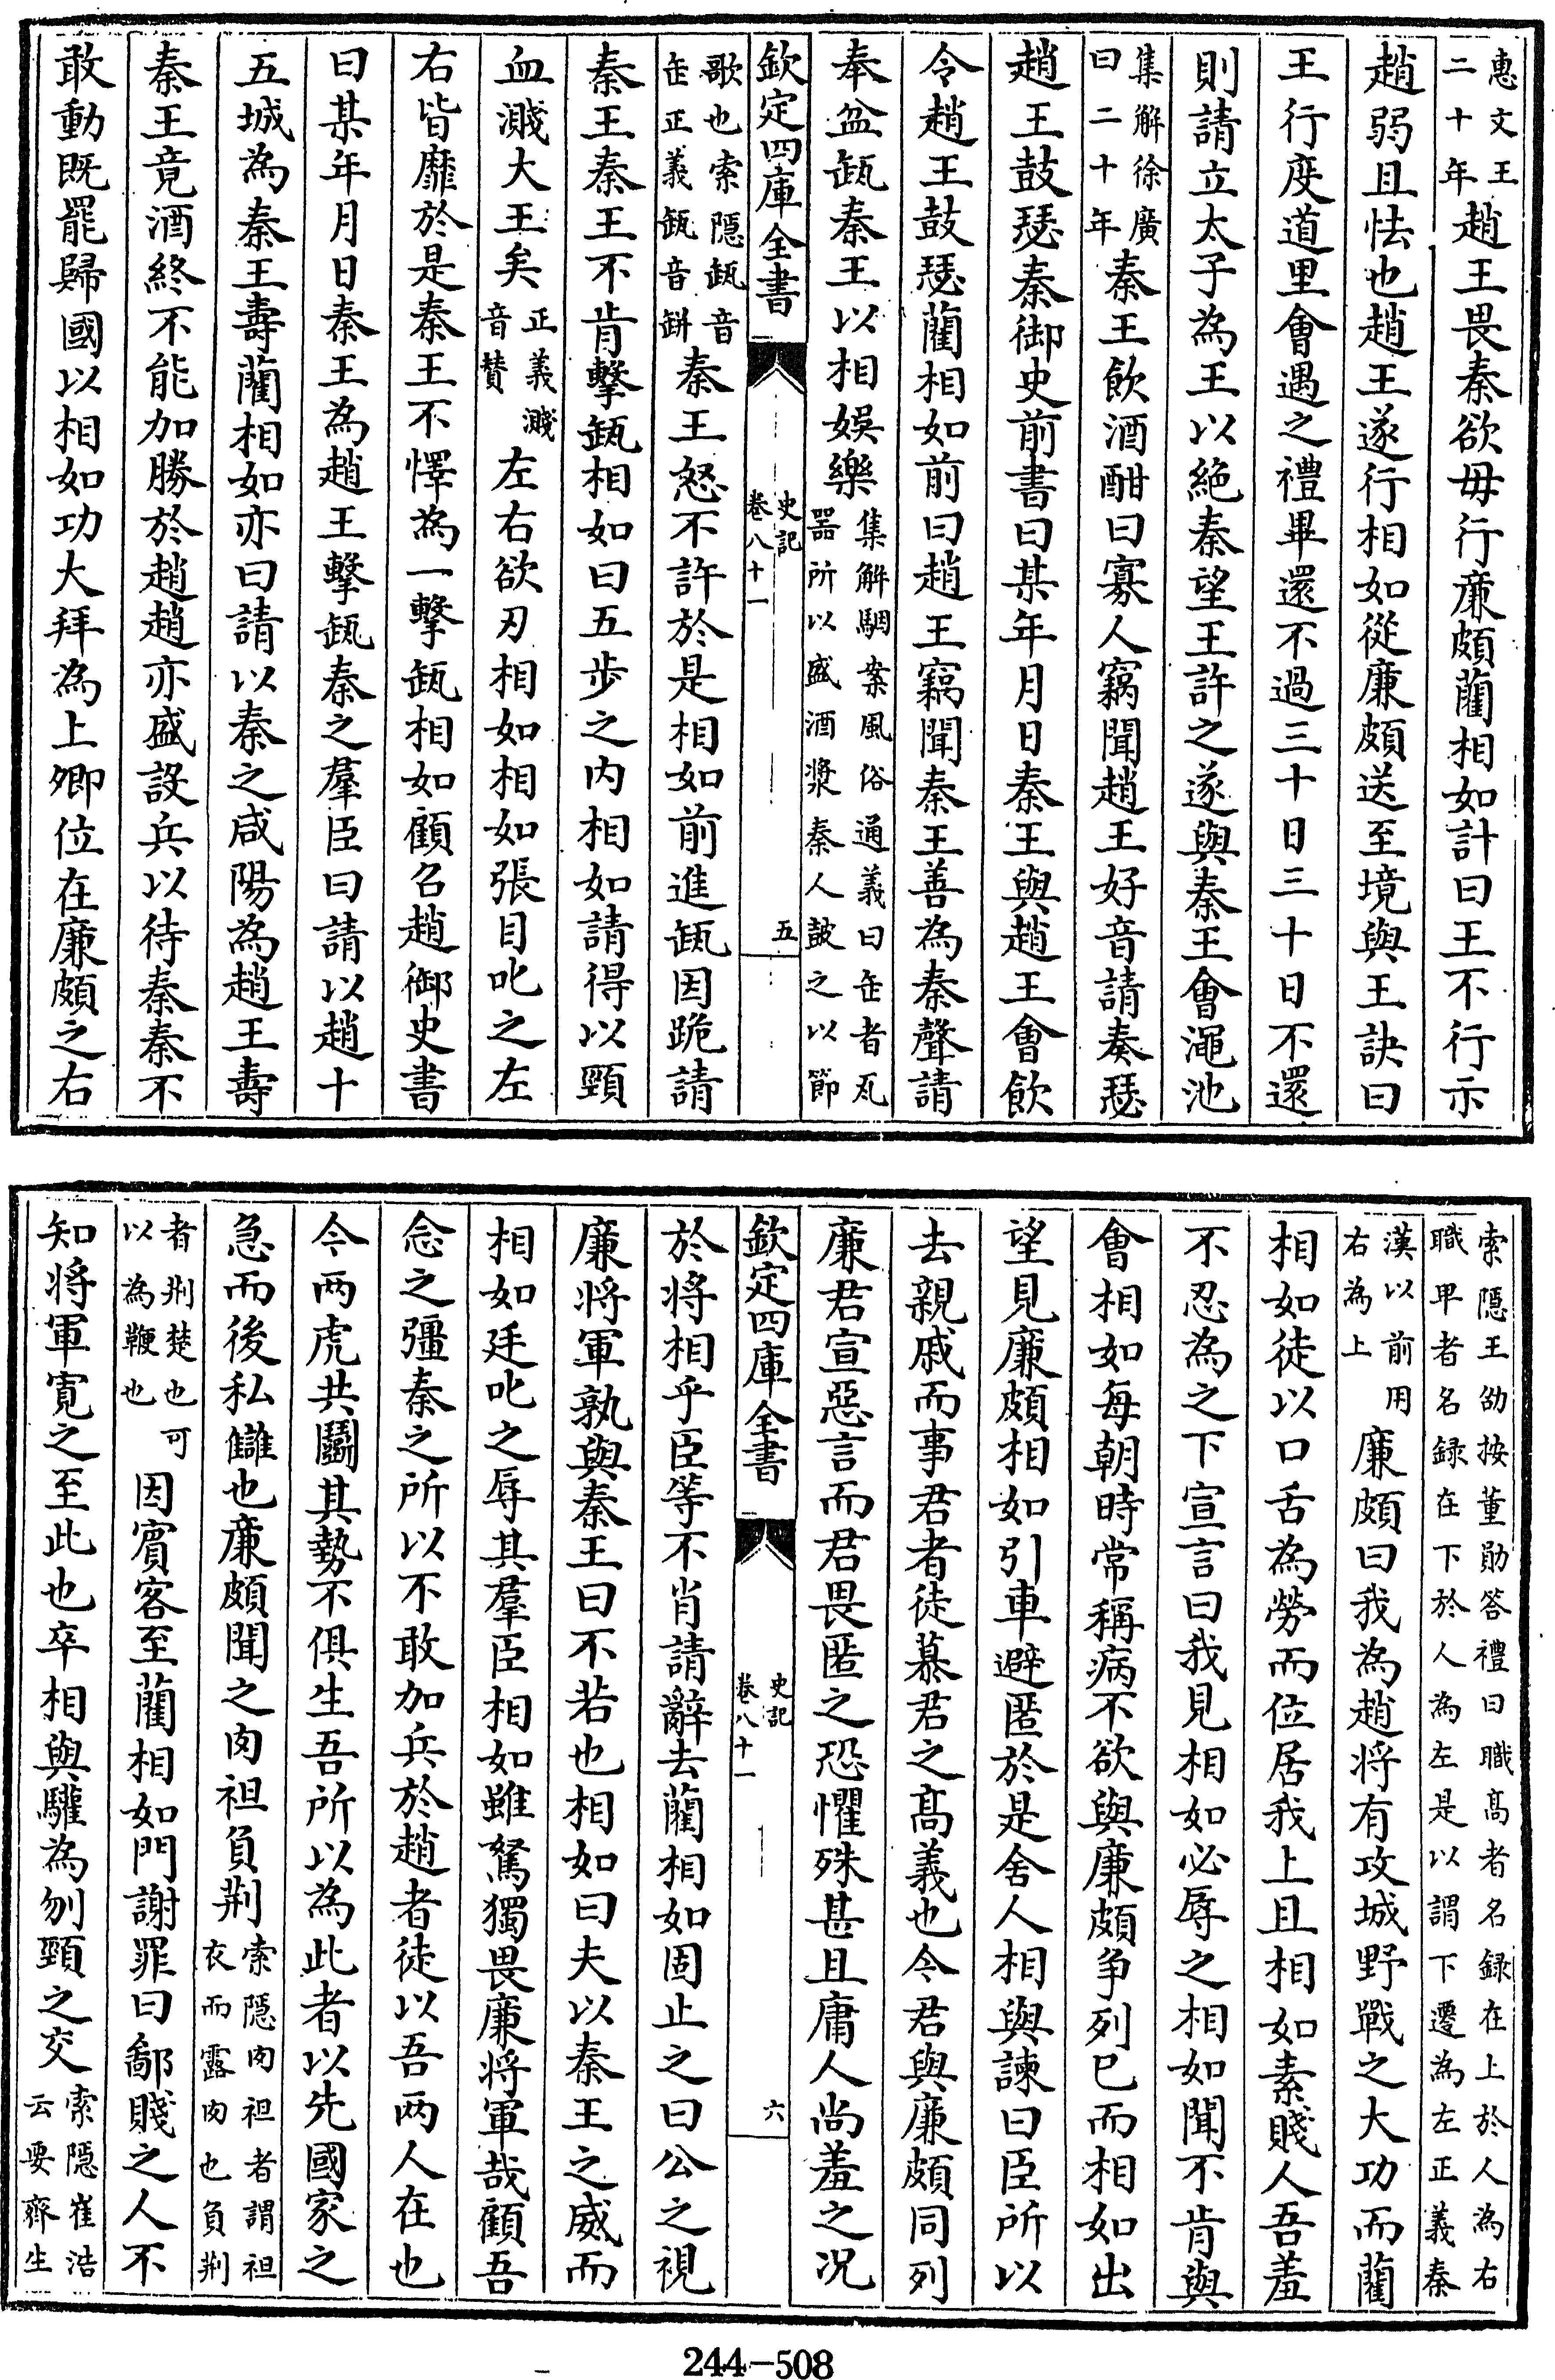 惠文王二十年趙王畏秦欲毋行廉頗藺相如計曰王不行示
趙弱且怯也趙王遂行相如從廉頗送至境與王訣曰
王行度道里會遇之禮畢還不過三十日三十日不還
則請立太子為王以絶秦望王許之遂與秦王會澠池
集解徐廣曰二十年秦王飲酒酣曰寡人竊聞趙王好音請奏瑟
趙王鼓瑟秦御史前書曰某年月日秦王與趙王會飲
令趙王鼓瑟藺相如前曰趙王竊聞秦王善為秦聲請
奉盆缻秦王以相娱樂集解駰案風俗通義曰缶者瓦器所以盛酒漿秦人鼓之以節
欽定四庫全書 史記卷八十一 五
歌也索隠缻音缶正義缻音缾秦王怒不許於是相如前進缻因跪請
秦王秦王不肯擊缻相如曰五步之内相如請得以頸
血濺大王矣正義濺音賛左右欲刃相如相如張目叱之左
右皆靡於是秦王不懌為一擊缻相如顧召趙御史書
曰某年月日秦王為趙王擊缻秦之羣臣曰請以趙十
五城為秦王壽藺相如亦曰請以秦之咸陽為趙王壽
秦王竟酒終不能加勝於趙趙亦盛設兵以待秦秦不
敢動既罷歸國以相如功大拜為上卿位在廉頗之右
索隠王劭按董勛答禮曰職髙者名録在上於人為右職卑者名録在下於人為左是以謂下遷為左正義秦
漢以前用右為上廉頗曰我為趙將有攻城野戰之大功而藺
相如徒以口舌為勞而位居我上且相如素賤人吾羞
不忍為之下宣言曰我見相如必辱之相如聞不肯與
會相如每朝時常稱病不欲與廉頗争列已而相如出
望見廉頗相如引車避匿於是舍人相與諫曰臣所以
去親戚而事君者徒慕君之髙義也今君與廉頗同列
廉君宣惡言而君畏匿之恐懼殊甚且庸人尚羞之况
欽定四庫全書 史記卷八十一 六
於將相乎臣等不肖請辭去藺相如固止之曰公之視
廉將軍孰與秦王曰不若也相如曰夫以秦王之威而
相如廷叱之辱其羣臣相如雖駑獨畏廉將軍哉顧吾
念之彊秦之所以不敢加兵於趙者徒以吾兩人在也
今兩虎共鬭其勢不俱生吾所以為此者以先國家之
急而後私讎也廉頗聞之肉袒負荆索隠肉袒者謂袒衣而露肉也負荆
者荆楚也可以為鞭也因賓客至藺相如門謝罪曰鄙賤之人不
知將軍寛之至此也卒相與驩為刎頸之交索隠崔浩云要齊生
244-508